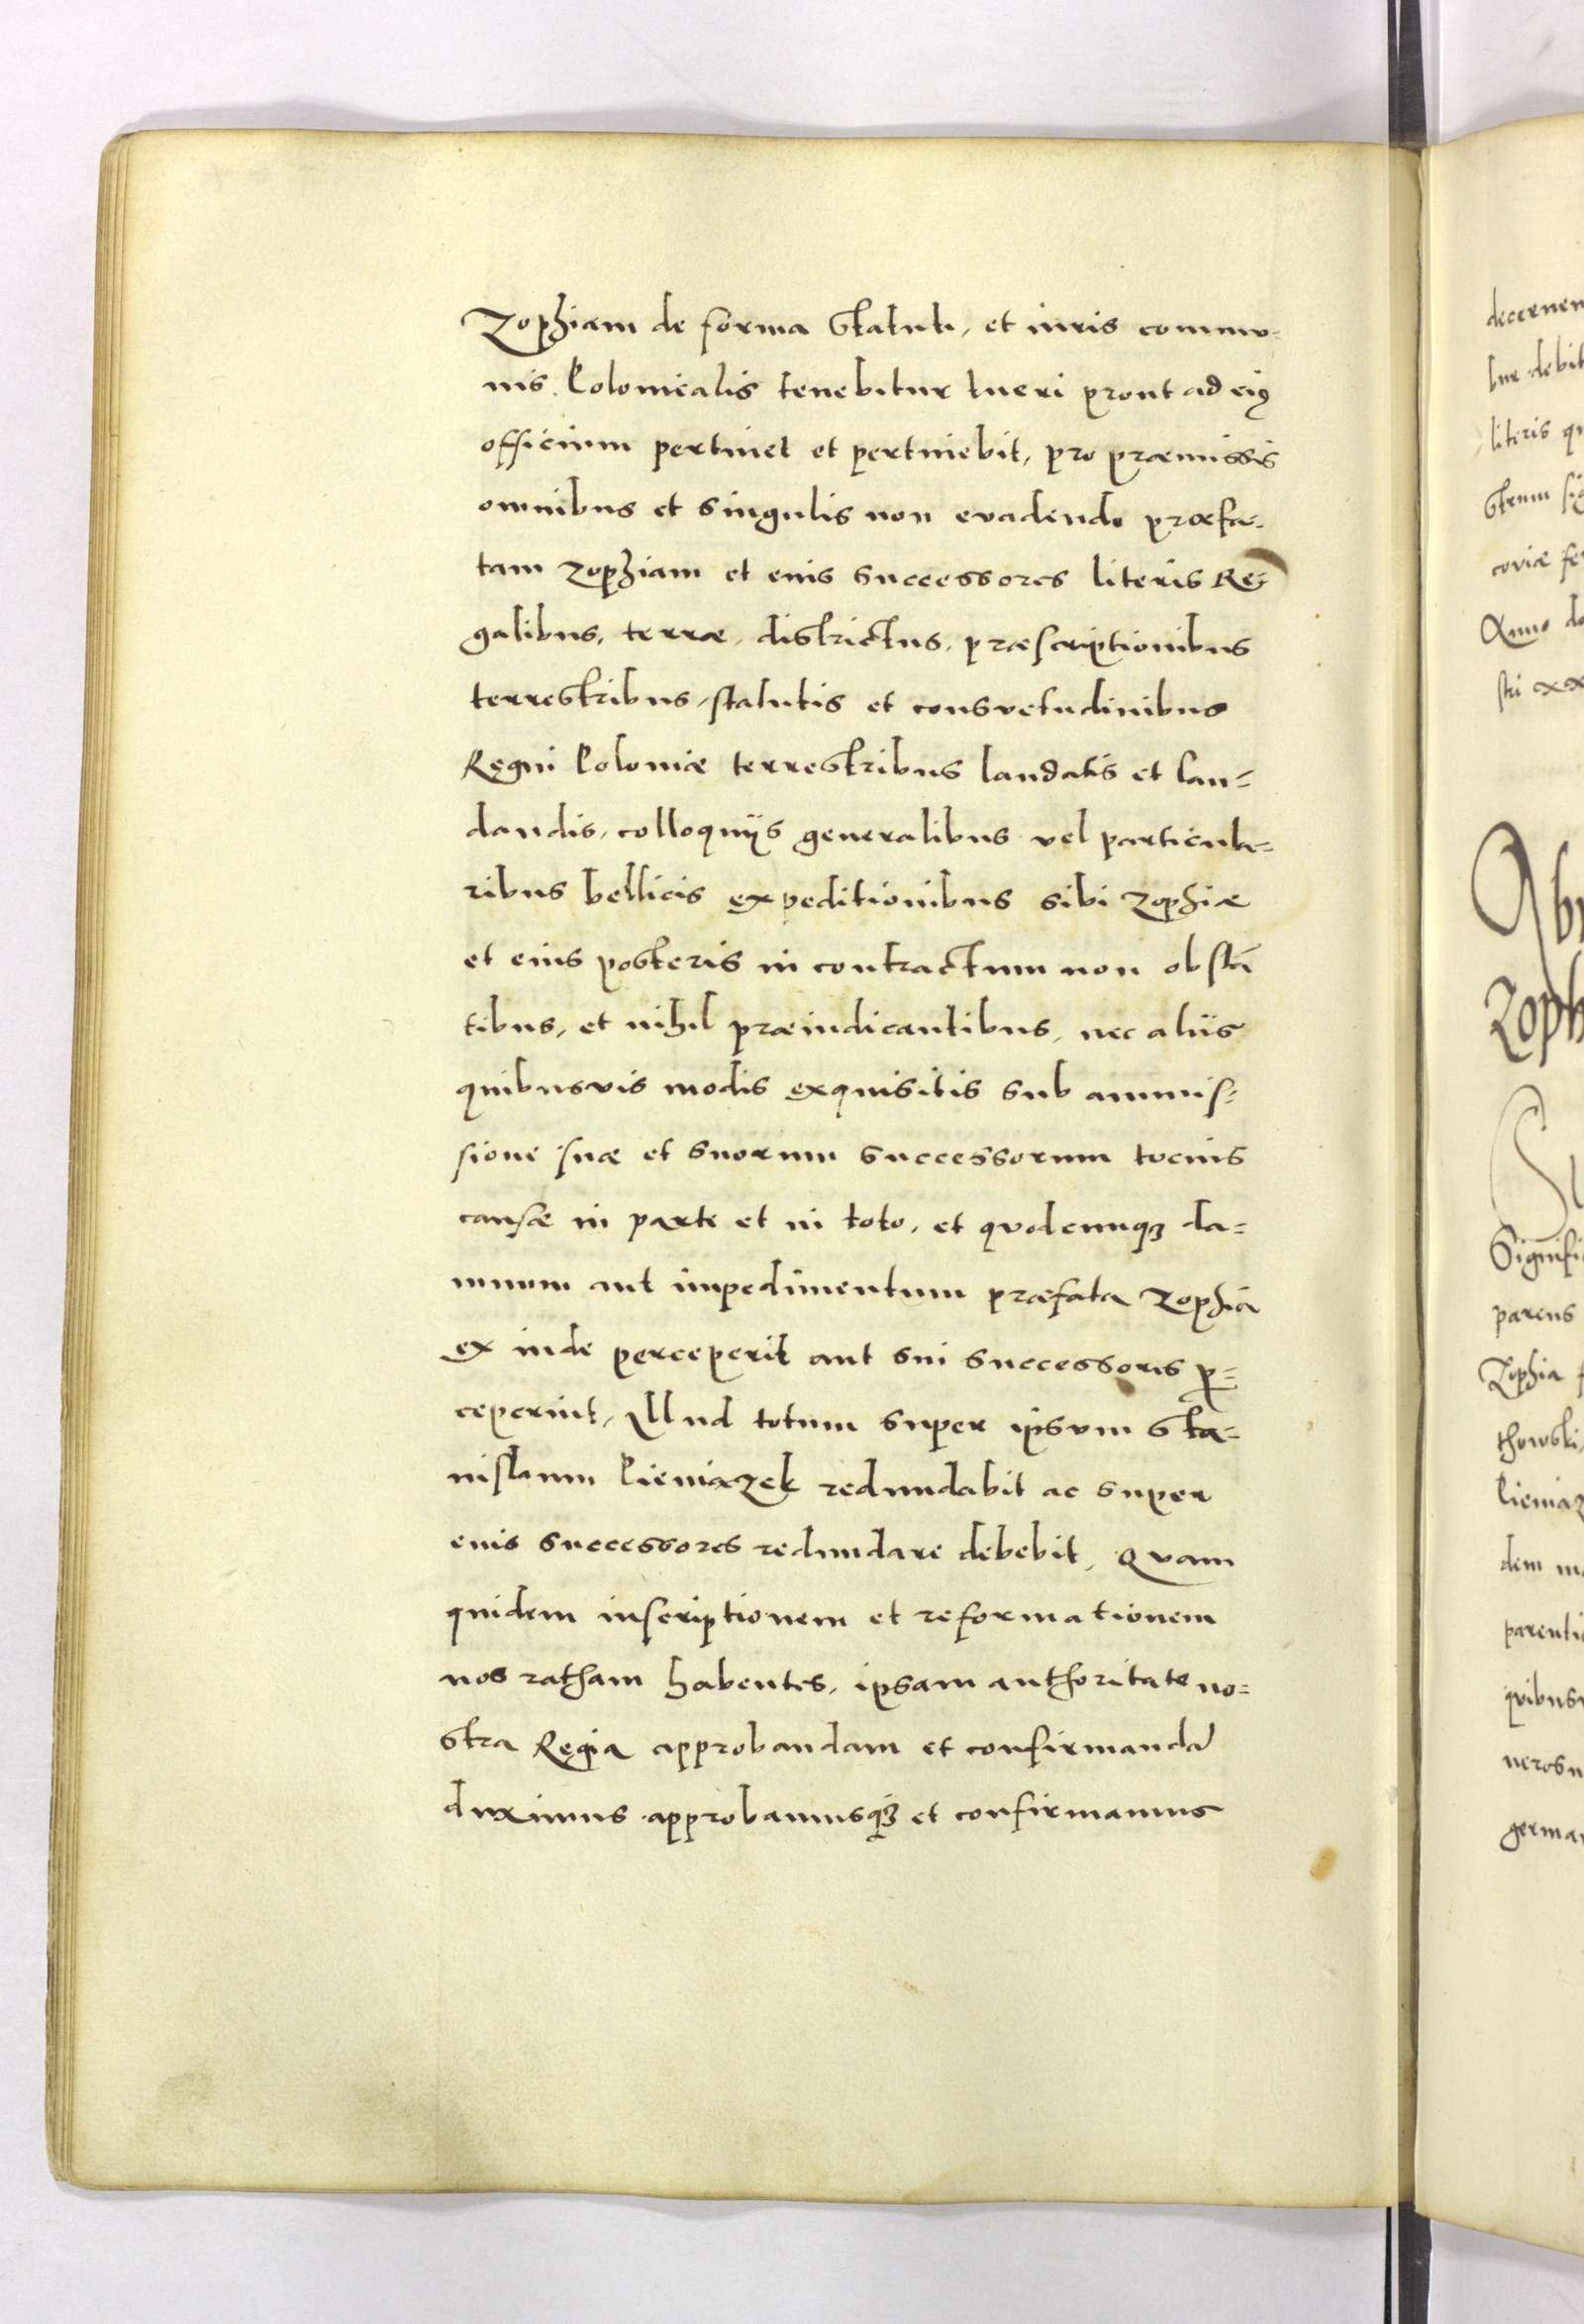 Zophiam de forma statuti, et iuris commu-
nis Polonicalis tenebitur tueri prout ad eiꝰ
officium pertinet et pertinebit, pro præmissis
omnibus et singulis non evadendo præfa-
tam Zophiam et eius successores literis Re-
galibus, terræ, districtus, præscriptionibus
terrestribus, statutis et consvetudinibus
Regni Poloniæ terrestribus laudatis et lau=
dandis, colloquijs generalibus vel particula=
ribus bellicis expeditionibus sibi Zophiæ
et eius posteris in contractum non obstā
tibus, et nihil præiudicantibus, nec aliis
quibusvis modis exquisitis sub ammis=
sione suæ et suorum successorum tocius
causæ in parte et in toto, et quodcunqꝫ da=
mnum aut impedimentum præfata Zophia
ex inde perceperit aut sui successores ꝑ=
ceperint, Illud totum super ipsum Sta=
nislaum Pieniazek redundabit ac super
eius successores redundare debebit, Quam
quidem inscriptionem et reformationem
nos ratham habentes, ipsam authoritate no=
stra Regia approbandam et confirmandā
duximus approbamusqꝫ et confirmamus
decernen
tur debit
literis qu
strum sig
coviæ fe
Anno do
stri xx
Zoph
Signifi
parens
Zophia
thowski
Pieniaz
dem m
parenti
quibus
neros
german